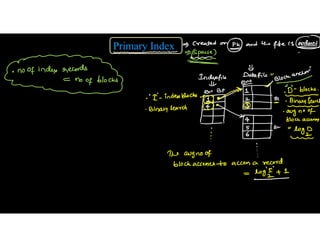 Primary Index → Created on PK and the file is ordered
→ (sparse)
• no of index records
= no of blocks
Indexfile
Datafile
Block anchor
• "I" - index blocks
• Binary search
1
4
1
2
3
B1
4
5
6
B2
"D" - blocks
• Binary search
• avg no of
block access
= log2 D
The avg no of
block accesses to access a record
= log2 I + 1